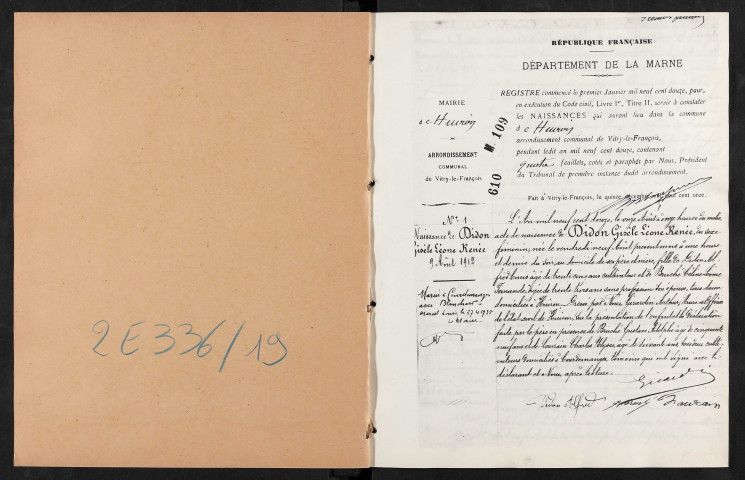 2E336/19
RÉPUBLIQUE FRANÇAISE
DÉPARTEMENT DE LA MARNE
MAIRIE
d'Huiron
ARRONDISSEMENT
COMMUNAL
de Vitry-le-François
M. 109
610
REGISTRE commencé le premier Janvier mil neuf cent douze, pour,
en exécution du Code civil, Livre Ier, Titre II, servir à constater
les NAISSANCES qui auront lieu dans la commune
d'Huiron
arrondissement communal de Vitry-le-François,
pendant ledit an mil neuf cent douze, contenant
quatre feuillets, cotés et paraphés par Nous, Président
du Tribunal de première instance dudit arrondissement.
Fait à Vitry-le-François, le quinze décembre mil neuf cent onze.
No 1
Naissance de Didon
Gisèle Léone Renée
9 Août 1912
Marié à
avec Blanchard
le 27.4.1935
L'An mil neuf cent douze, le onze Août à onze heures du matin
acte de naissance de Didon Gisèle Léone Renée, du sexe
féminin, née le vendredi neuf Août présent mois à une heure
et demie du soir, au domicile de ses père et mère, fille de Didon Al-
fred âgé de trente cinq ans cultivateur et de
Fernande, âgée de trente trois ans sans profession son épouse, tous deux
domiciliés à Huiron. Dressé par Nous Arthur,
de l'état civil de Huiron, sur la présentation de l'enfant et la déclaration
faite par le père en présence de Gustave Adolphe âgé de cinquante
neuf ans et de Charles Ulysse, âgé de soixante ans
domiciliés à Courdemanges témoins qui ont signé avec le
déclarant et Nous, après lecture.
Didon Alfred